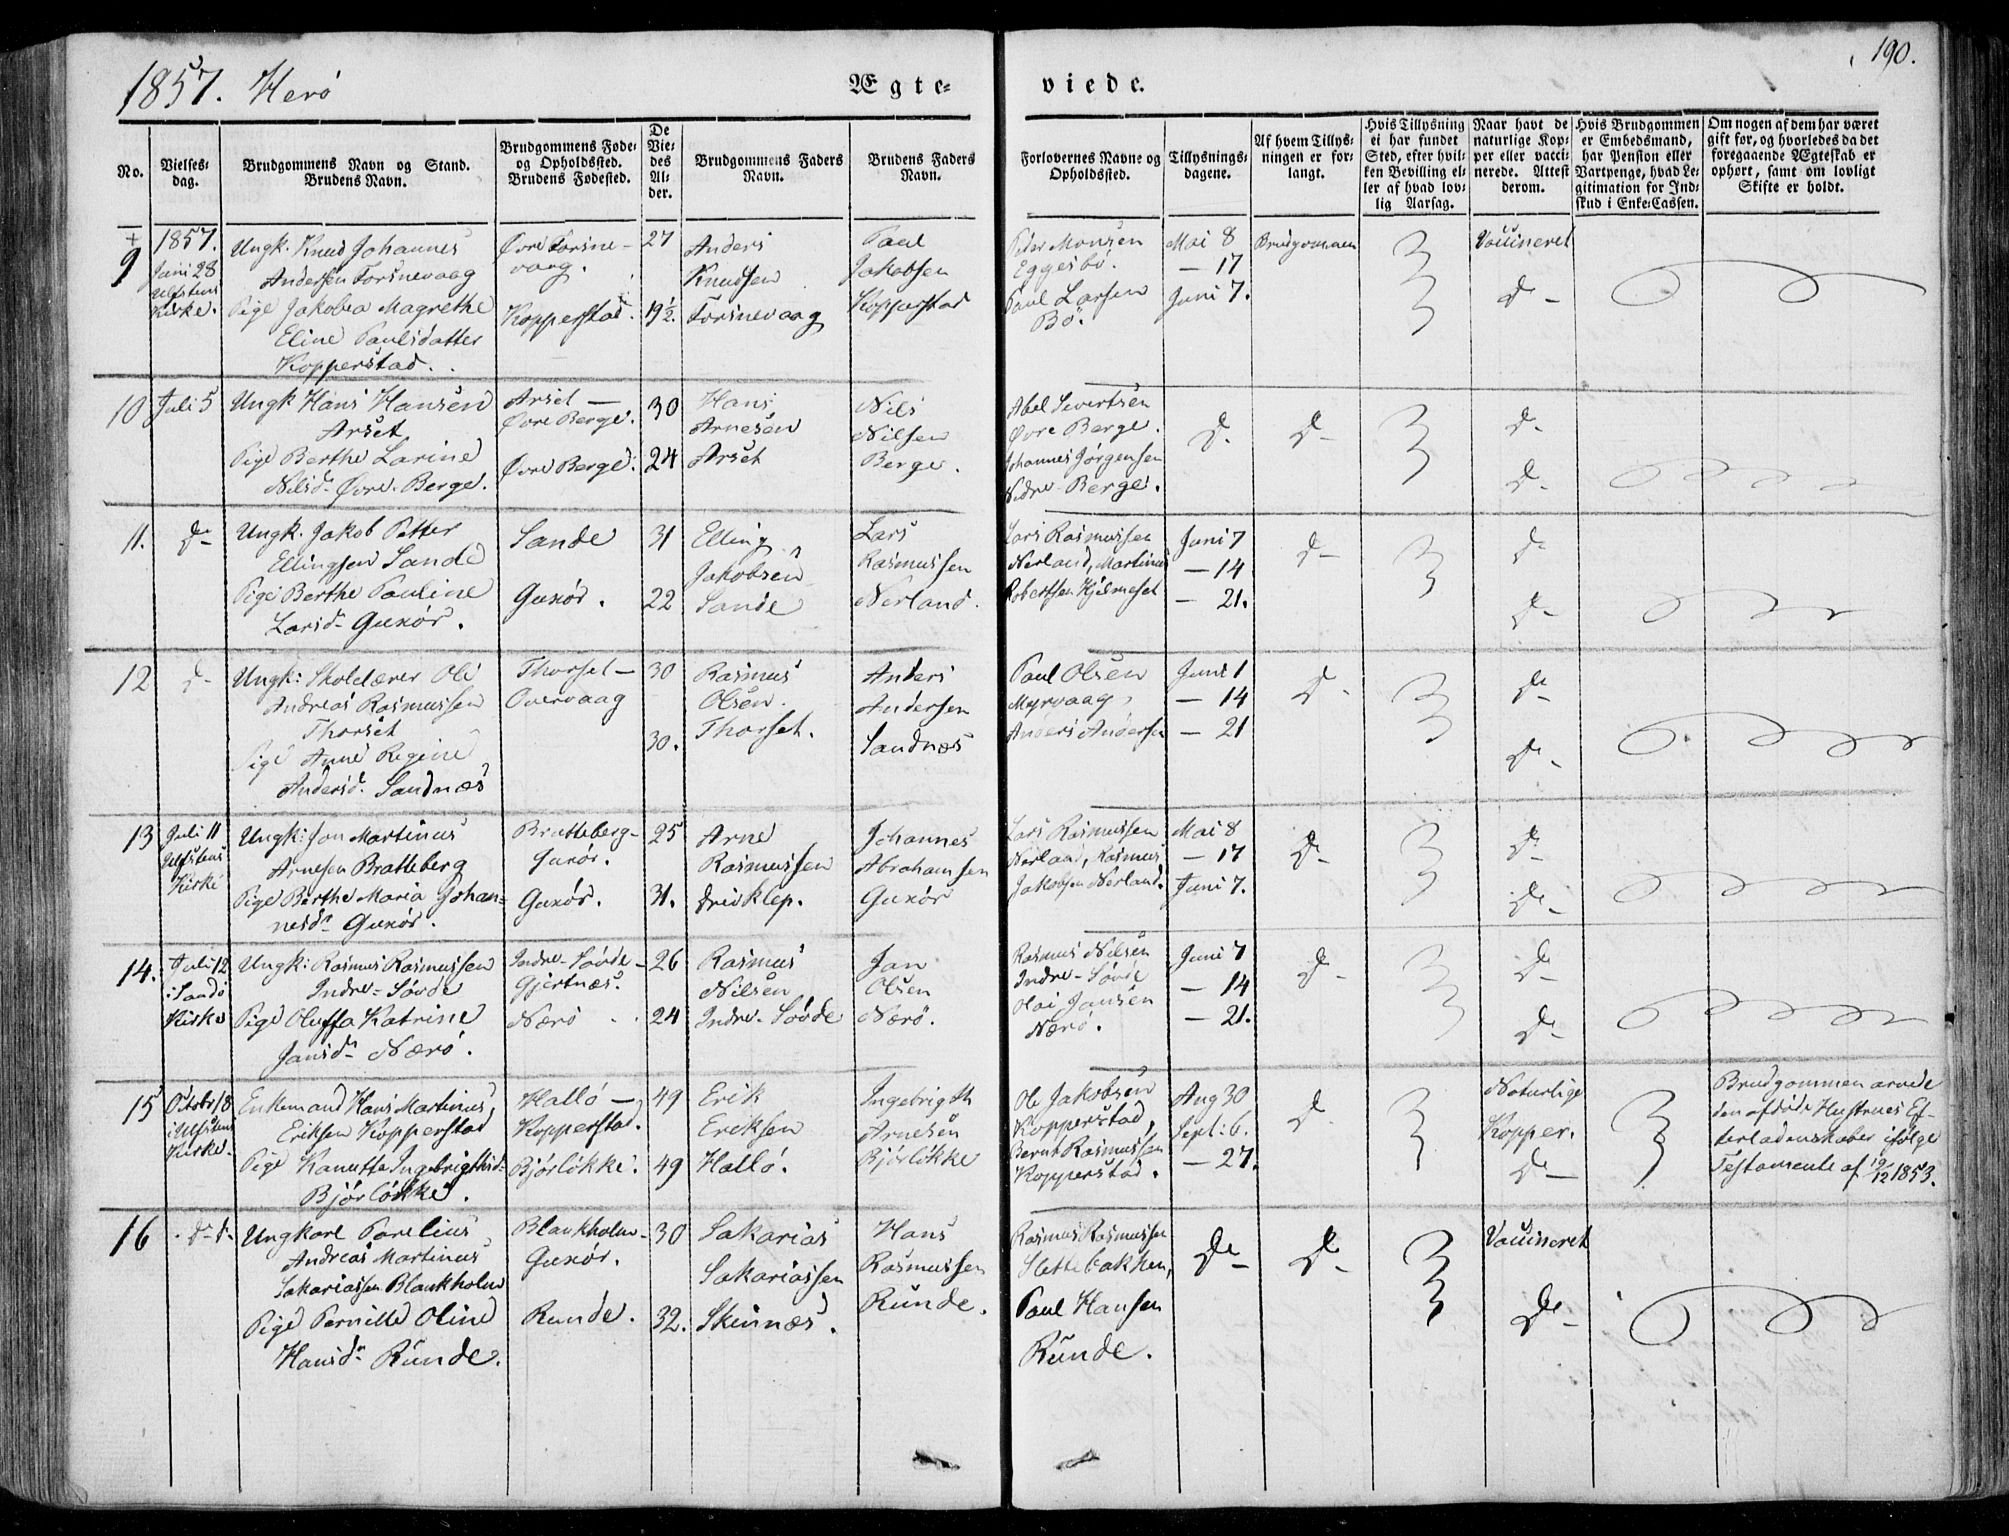 1857. Herö
Ægte-
viede.
190.
No.
Vielses-
dag.
Brudgommens Navn og Stand.
Brudens Navn.
Brudgommens Føde-
og Opholdssted.
Brudens Fødested.
De
Vie-
des
Al-
der.
Brudgommens Faders
Navn.
Brudens Faders
Navn.
Forlovernes Navne og
Opholdssted.
Tillysnings-
dagene.
Af hvem Tillys-
ningen er for-
langt.
Hvis Tillysning
ei har fundet
Sted, efter hvil-
ken Bevilling el-
ler af hvad lov-
lig Aarsag.
Naar havt de
naturlige Kop-
per eller vacci-
nerede. Attest
derom.
Hvis Brudgommen
er Embedsmand,
har Pension eller
Vartpenge, hvad Le-
gitimation for Ind-
skud i Enke-Cassen.
Om nogen af dem har været
gift før, og hvorledes da det
foregaaende Ægteskab er
ophørt, samt om lovligt
Skifte er holdt.
+
9
1857.
Juni 28
Ulfstens
Kirke.
Ungk. Knud Johannes
Andersen Torsnevaag
Pige Jakobea Magrethe
Eline Paulsdatter
Kopperstad.
Øvre Torsne-
vaag.
Kopperstad.
27
19½.
Anders
Knudsen
Torsnevaag
Paul
Jakobsen
Kopperstad
Peder Monsen
Eggesbö.
Paul Larsen
Bö.
Mai 8
— 17
Juni 7.
Brudgommen
Vaccineret
D-
10
Juli 5
Ungk Hans Hansen
Arset
Pige Berthe Larine
Nilsd- Øvre-Berge.
Arset —
Øvre Berge.
Øvre Berge.
30
24
Hans
Arnesen
Arset
Nils
Nilsen
Berge.
Abel Sivertsen
Øvre Berge.
Johannes Jørgensen
Nedre-Berge.
D-
D-
D-
D-
11.
D-
Ungk. Jakob Petter
Ellingsen Sande
Pige Berthe Pauline
Larsd- Guxör.
Sande
Guxör.
31
22
Elling
Jakobsen
Sande
Lars
Rasmussen
Nerland.
Lars Rasmussen
Nerland, Martinus
Robertsen Hjelmeset
Juni 7
— 14
— 21.
D-
D-
D-
12
D-
Ungk: Skolelærer Ole
Andreas Rasmussen
Thorset
Pige Anne Regine
Andersd. Sandnæs
Thorset —
Overvaag
30
30.
Rasmus
Olsen
Thorset.
Anders
Andersen
Sandnæs
Paul Olsen
Myrvaag,
Anders Andersen
Juni 1
— 14
— 21
D-
D-
D-
13
Juli 11
Ulfstens
Kirke
Ungk: Jon Martinus
Arnesen Bratteberg
Pige Berthe Maria Johan-
nesd- Guxör.
Bratteberg-
Guxör.
Guxör.
25
31.
Arne
Rasmussen
Driveklep.
Johannes
Abrahamsen
Guxör
Lars Rasmussen
Nerland, Rasmus
Jakobsen Nerland.
Mai 8
— 17
Juni 7.
D-
D-
D-
14.
Juli 12
i Sandö
Kirke
Ungk: Rasmus Rasmussen
Indre-Søvde
Pige Oluffa Katrine
Jansd- Nærö.
Indre-Søvde-
Gjertnæs.
Nærö
26
24
Rasmus
Nilsen
Indre-Søvde
Jan
Olsen
Nærö.
Rasmus Nilsen
Indre-Søvde
Olai Jansen
Nærö.
Juni 7
— 14
— 21.
D-
D-
D-
15
Octobr 18
i Ulfstens
Kirke.
Enkemand Hans Martinus
Eriksen Kopperstad
Pige Kanutte Ingebrigtsd-
Bjørløkke.
Halló —
Kopperstad.
Bjørløkke.
49
49
Erik
Eriksen
Halló.
Ingebrigth
Arnesen
Bjørløkke
Ole Jakobsen
Kopperstad,
Bernt Rasmussen
Kopperstad.
Aug 30
Sept: 6.
— 27.
D-
Naturlige
Kopper.
D-
Brudgommen arvede
den afdøde Hustrues Ef-
terladenskaber ifølge
Testamente af 19/12 1853.
16
D- D-
Ungkarl Parelius
Andreas Martinus
Sakariassen Blankholm
Pige Pernille Oline
Hansd- Runde.
Blankholm-
Guxör.
Runde.
30
32.
Sakarias
Sakariassen
Skinnæs.
Hans
Rasmussen
Runde.
Rasmus Rasmussen
Slettebakken,
Paul Hansen
Runde.
D-
D-
Vaccineret
D-